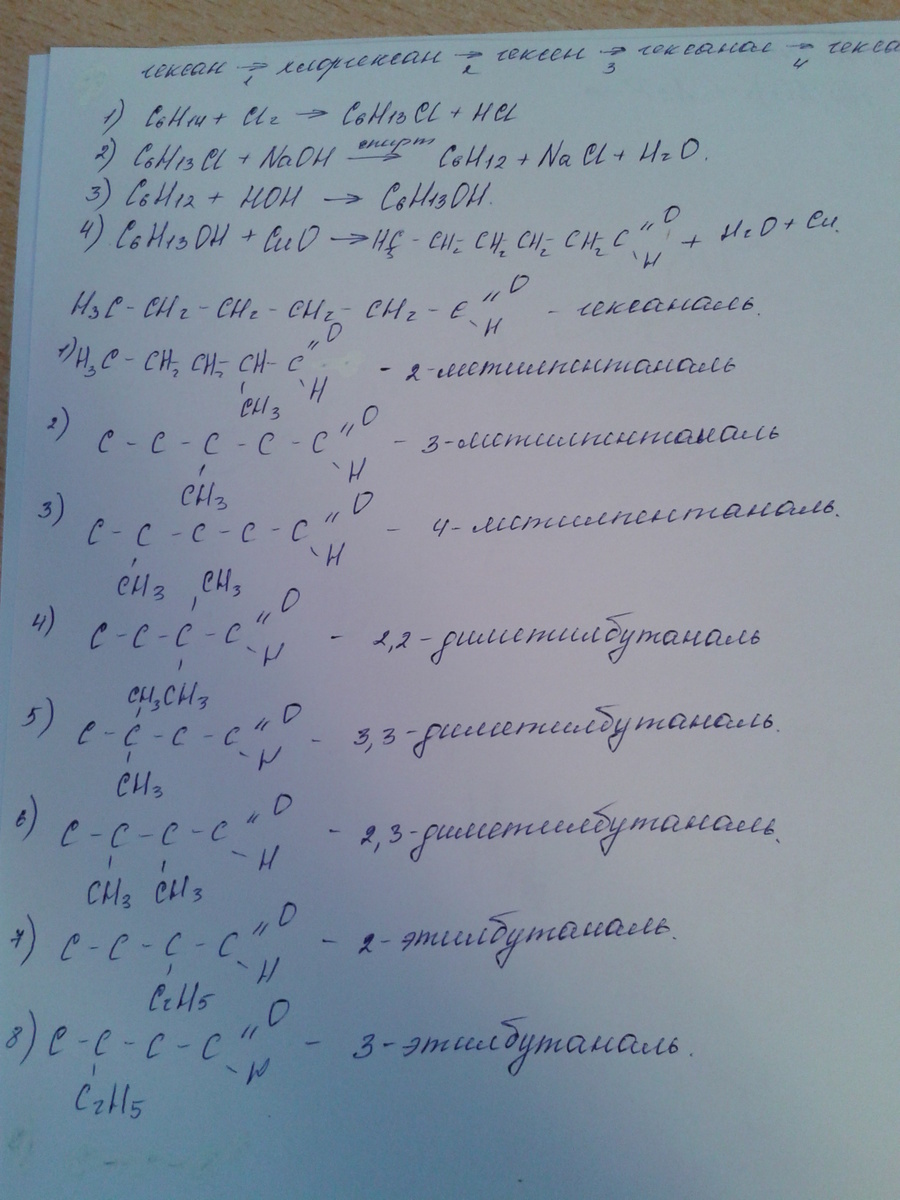 гексан →1 хлоргексан →2 гексен →3 гексанол →4 гекса
1) C6H14 + Cl2 → C6H13Cl + HCl
2) C6H13Cl + NaOH спирт→ C6H12 + NaCl + H2O.
3) C6H12 + HOH → C6H13OH.
4) C6H13OH + CuO → H3C - CH2 - CH2 CH2 CH2 C =O H + H2O + Cu.
H3C - CH2 - CH2 - CH2 - CH2 - C =O H - гексаналь.
1) H3C - CH2 CH2 - CH - C =O H - 2-метилпентаналь
CH3
2) C - C - C - C - C =O H - 3-метилпентаналь
CH3
3) C - C - C - C - C =O H - 4-метилпентаналь.
CH3 CH3
4) C - C - C - C =O H - 2,2-диметилбутаналь
CH3 CH3
5) C - C - C - C =O H - 3,3-диметилбутаналь.
CH3
6) C - C - C - C =O H - 2,3-диметилбутаналь.
CH3 CH3
7) C - C - C - C =O H - 2-этилбутаналь.
C2H5
8) C - C - C - C =O H - 3-этилбутаналь.
C2H5